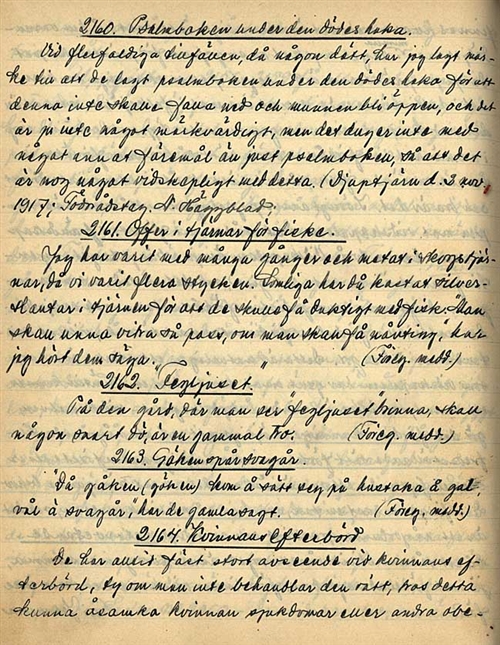 2160. Psalmboken under den dödes haka.
Vid flerfaldiga tillfällen, då någon dött, har jag lagt mär-
ke till att de lagt psalmboken under den dödes haka för att
denna inte skall falla ned och munnen bli öppen, och det
är ju inte något märkvärdigt, men det duger inte med
något annat föremål än just psalmboken, så att det
är nog något vidskapligt med detta. (Djuptjärn d. 3 nov.
1917; Tod N. Häggblad.
2161. Offer i tjärnar för fiske.
Jag har varit med många gånger och metat i skogstjär-
nar, då vi varit flera stycken. Somliga har då kastat silver-
slantar i tjärnen för att de skulle få duktigt med fisk. "Man
skall unna vidra så pass, om man skall få nånting," har
jag hört dem säga. (Föreg. medd.)
2162. "Fegljuset."
På den gård, där man ser "fegljuset" brinna, skall
någon snart dö, är en gammal tro. (Föreg. medd.)
2163. Göken spår svagår.
"Då gåken (göken) kom å sätt seg på hustaka å gal,
vål å svagår," har de gamla sagt. (Föreg. medd.)
2164. Kvinnans efterbörd
De har alltid fäst stort avseende vid kvinnans ef-
terbörd, ty om man inte behandlar den rätt, tros detta
kunna åsamka kvinnan sjukdomar eller andra obe-